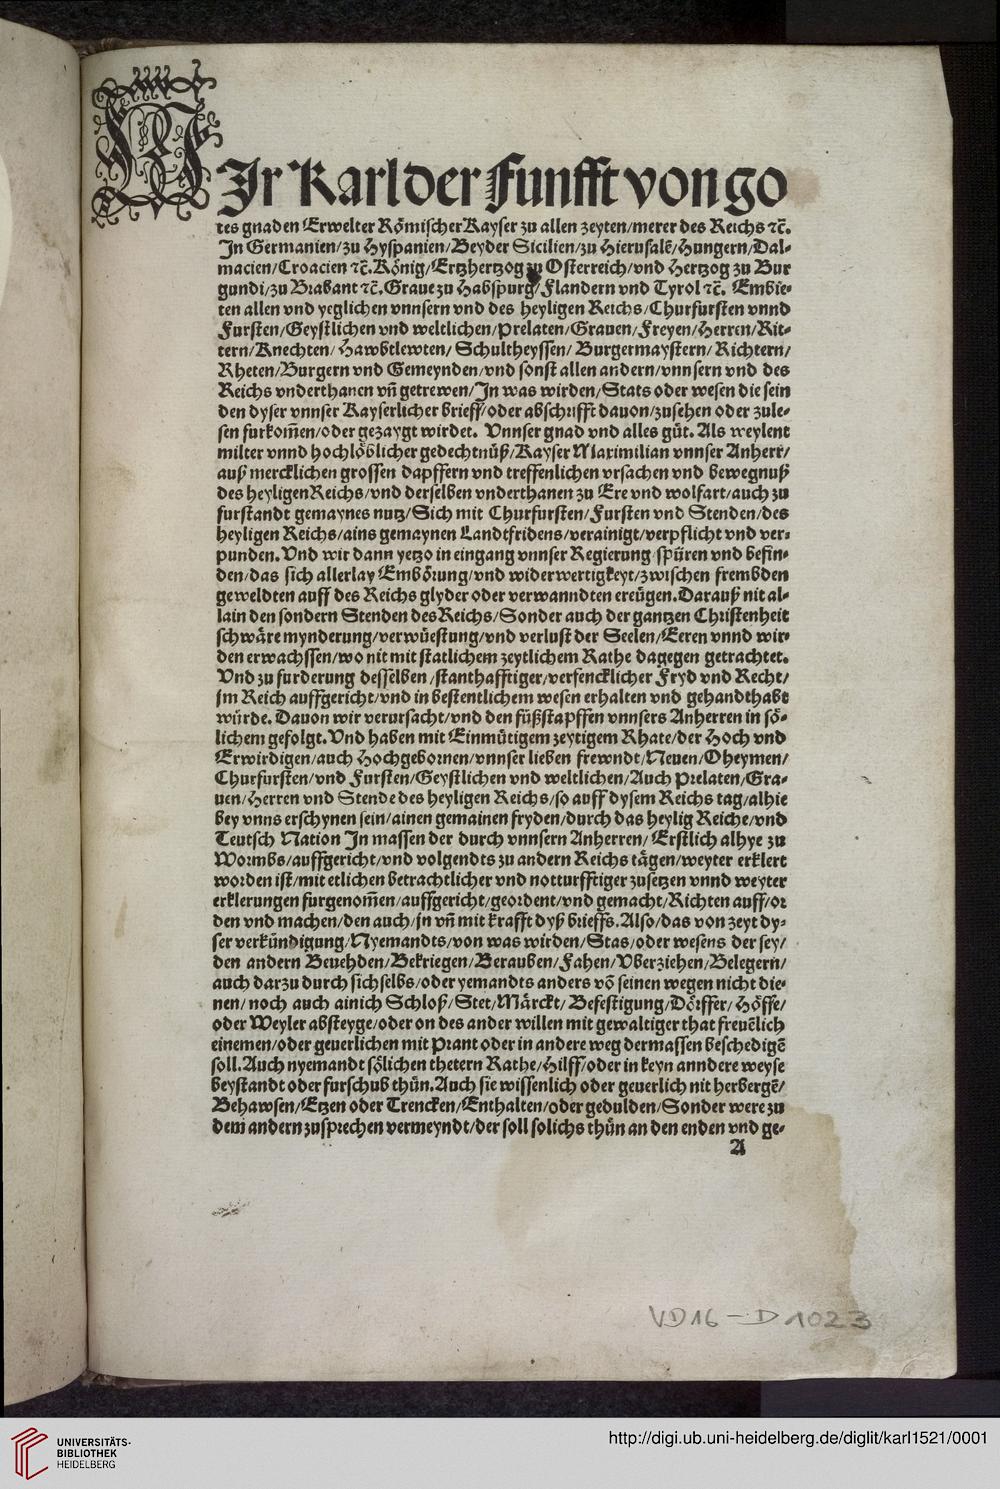 WIr Karl der Funfft von go
tes gnaden Erwelter Römischer Kayser zu allen zeyten/merer des Reichs ⁊c̄.
In Germanien/zu Hyspanien/Beyder Sicilien/zu Hierusalē/Hungern/Dal-
macien/Croacien ⁊c̄. König/Ertzhertzog zu Osterreich/vnd Hertzog zu Bur
gundi/zu Brabant ⁊c̄. Graue zu Habspurg/Flandern vnd Tyrol ⁊c̄. Embie-
ten allen vnd yeglichen vnnsern vnd des heyligen Reichs/Churfursten vnnd
Fursten/Geystlichen vnd weltlichen/Prelaten/Grauen/Freyen/Herren/Rit-
tern/Knechten/Hawbtlewten/Schultheyssen/Burgermaystern/Richtern/
Rheten/Burgern vnd Gemeynden/vnd sonst allen andern/vnnsern vnd des
Reichs vnderthanen vn̄ getrewen/In was wirden/Stats oder wesen die sein
den dyser vnnser Kayserlicher brieff/oder abschrifft dauon/zusehen oder zule-
sen furkom̄en/oder gezaygt wirdet. Vnnser gnad vnd alles gůt. Als weylent
milter vnnd hochlöblicher gedechtnüß/Kayser Maximilian vnnser Anherr/
auß mercklichen grossen dapffern vnd treffenlichen vrsachen vnd bewegnuß
des heyligen Reichs/vnd derselben vnderthanen zu Ere vnd wolfart/auch zu
furstandt gemaynes nutz/Sich mit Churfursten/Fursten vnd Stenden/des
heyligen Reichs/ains gemaynen Landtfridens/verainigt/verpflicht vnd ver-
punden. Vnd wir dann yetzo in eingang vnnser Regierung spüren vnd befin-
den/das sich allerlay Embörung/vnd widerwertigkeyt/zwischen frembden
geweldten auff des Reichs glyder oder verwanndten ereügen. Darauß nit al-
lain den sondern Stenden des Reichs/Sonder auch der gantzen Christenheit
schwäre mynderung/verwüestung/vnd verlust der Seelen/Eeren vnnd wir-
den erwachssen/wo nit mit statlichem zeytlichem Rathe dagegen getrachtet.
Vnd zu furderung desselben/stanthafftiger/versencklicher Fryd vnd Recht/
jm Reich auffgericht/vnd in bestentlichem wesen erhalten vnd gehandthabt
würde. Dauon wir verursacht/vnd den fůßstapffen vnnsers Anherren in sö-
lichem gefolgt. Vnd haben mit Einmütigem zeytigem Rhate/der Hoch vnd
Erwirdigen/auch Hochgebornen/vnnser lieben frewndt/Neuen/Oheymen/
Churfursten/vnd Fursten/Geystlichen vnd weltlichen/Auch Prelaten/Gra-
uen/Herren vnd Stende des heyligen Reichs/so auff dysem Reichs tag/alhie
bey vnns erschynen sein/ainen gemainen fryden/durch das heylig Reiche/vnd
Teutsch Nation In massen der durch vnnsern Anherren/Erstlich alhye zu
Wormbs/auffgericht/vnd volgendts zu andern Reichs tägen/weyter erklert
worden ist/mit etlichen betrachtlicher vnd notturfftiger zusetzen vnnd weyter
erklerungen furgenom̄en/auffgericht/geordent/vnd gemacht/Richten auff/or
den vnd machen/den auch/jn vn̄ mit krafft dyß brieffs. Also/das von zeyt dy-
ser verkündigung/Nyemandts/von was wirden/Stas/oder wesens der sey/
den andern Beuehden/Bekriegen/Berauben/Fahen/Vberziehen/Belegern/
auch darzu durch sich selbs/oder yemandts anders vō seinen wegen nicht die-
nen/noch auch ainich Schloß/Stet/Märckt/Befestigung/Dörffer/Höffe/
oder Weyler absteyge/oder on des ander willen mit gewaltiger that freuēlich
einemen/oder geuerlichen mit Prant oder in andere weg dermassen beschedigē
soll. Auch nyemandt sölichen thetern Rathe/Hilff/oder in keyn anndere weyse
beystandt oder furschub thůn. Auch sie wissenlich oder geuerlich nit herbergē/
Behawsen/Etzen oder Trencken/Enthalten/oder gedulden/Sonder were zu
dem andern zusprechen vermeyndt/der soll solichs thůn an den enden vnd ge-
A
VD16 - D 1023
UNIVERSITÄTS-
BIBLIOTHEK
HEIDELBERG
http://digi.ub.uni-heidelberg.de/diglit/karl1521/0001